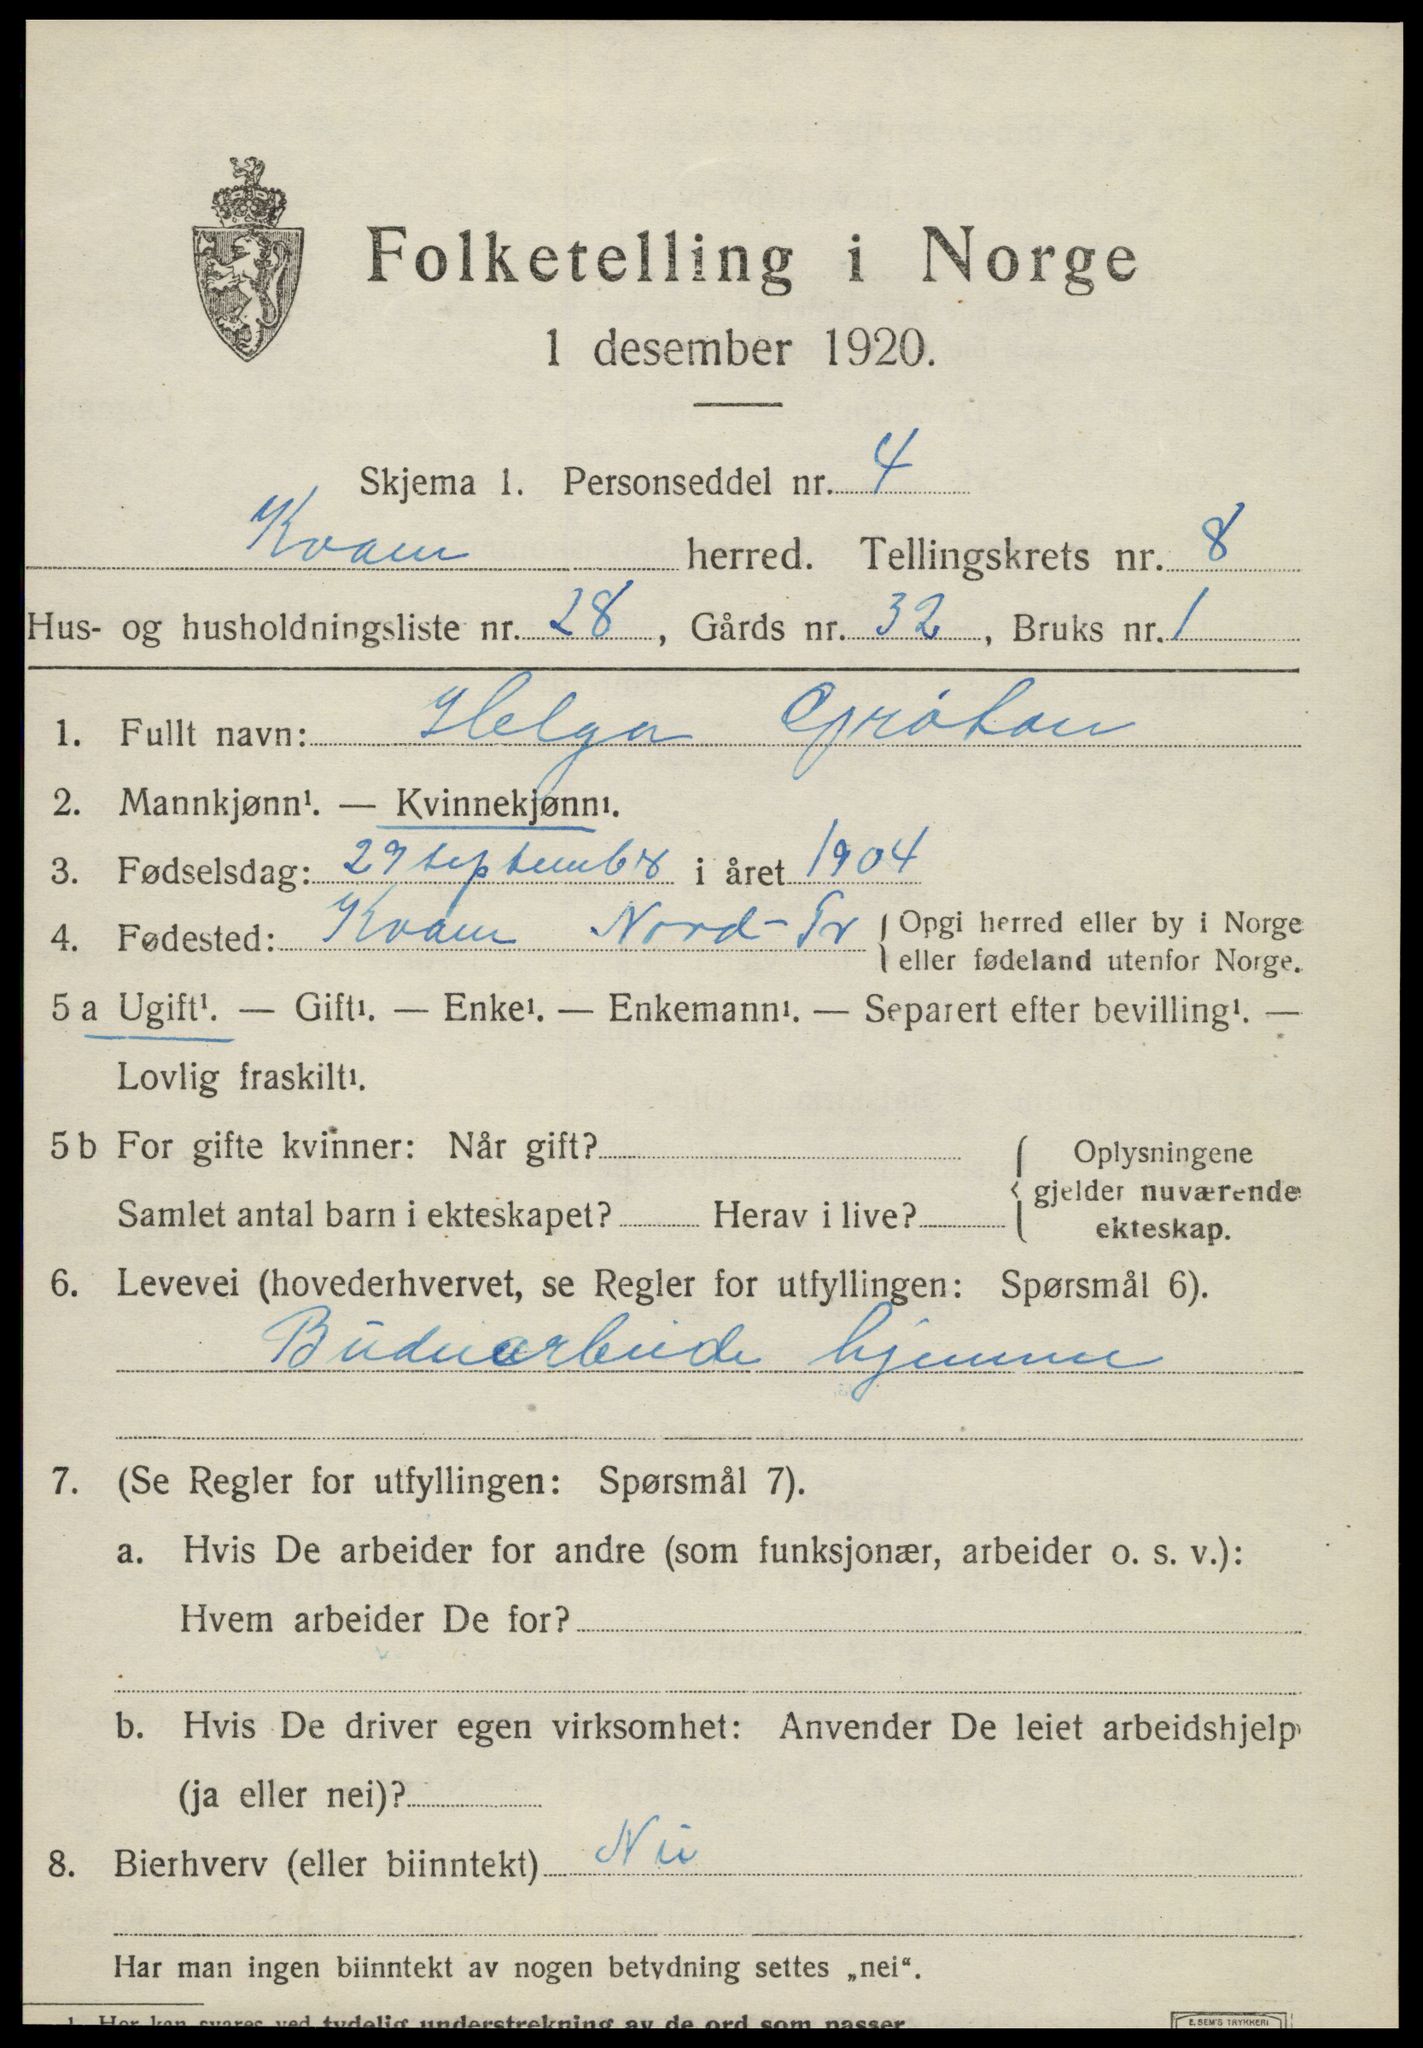 Folketelling i Norge
1 desember 1920.
Skjema 1. Personseddel nr. 4
Kvam herred. Tellingskrets nr. 8
Hus- og husholdningsliste nr. 28, Gårds nr. 32, Bruks nr. 1
1. Fullt navn: Helga Gråtan
2. Mannkjønn¹. — Kvinnekjønn¹.
3. Fødselsdag: 29 september i året 1904
4. Fødested: Kvam Nord-Tr { Opgi herred eller by i Norge
eller fødeland utenfor Norge.
5 a Ugift¹. — Gift¹. — Enke¹. — Enkemann¹. — Separert efter bevilling¹. —
Lovlig fraskilt¹.
5 b For gifte kvinner: Når gift? { Oplysningene
gjelder nuværende
Samlet antal barn i ekteskapet? Herav i live? ekteskap.
6. Levevei (hovederhvervet, se Regler for utfyllingen: Spørsmål 6).
Budeiearbeide hjemme
7. (Se Regler for utfyllingen: Spørsmål 7).
a. Hvis De arbeider for andre (som funksjonær, arbeider o. s. v.):
Hvem arbeider De for?
b. Hvis De driver egen virksomhet: Anvender De leiet arbeidshjelp
(ja eller nei)?
8. Bierhverv (eller biinntekt) Nei
Har man ingen biinntekt av nogen betydning settes „nei“.
1. Her kan svares ved tydelig understrekning av de ord som passer
E. SEM'S TRYKKERI